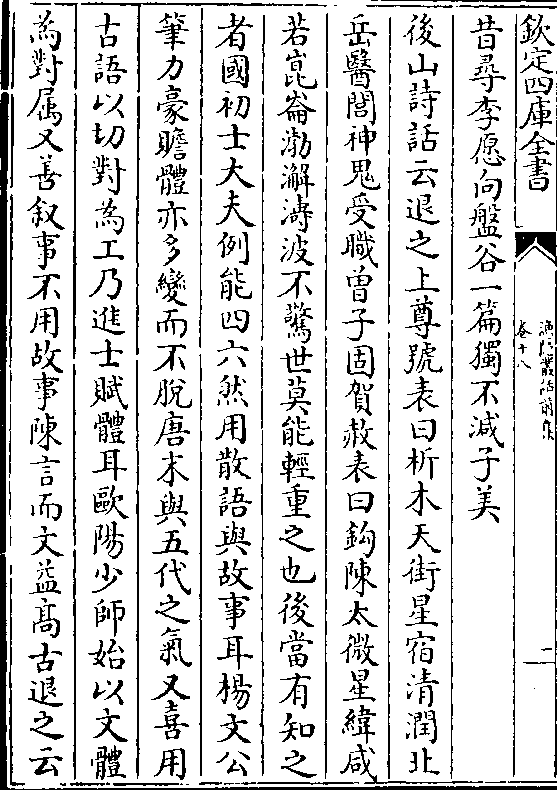 欽定四庫全書
漁隱叢話前集
卷十八
二
昔尋李愿向盤谷一篇獨不減子美
後山詩話云退之上尊號表曰析木天街星宿清潤北
岳醫閭神鬼受職曾子固賀赦表曰鈎陳太微星緯咸
若崑崙渤澥濤波不驚世莫能輕重之也後當有知之
者國初士大夫例能四六然用散語與故事耳楊文公
筆力豪贍體亦多變而不脫唐末與五代之氣又喜用
古語以切對為工乃進士賦體耳歐陽少師始以文體
為對屬又善叙事不用故事陳言而文益髙古退之云